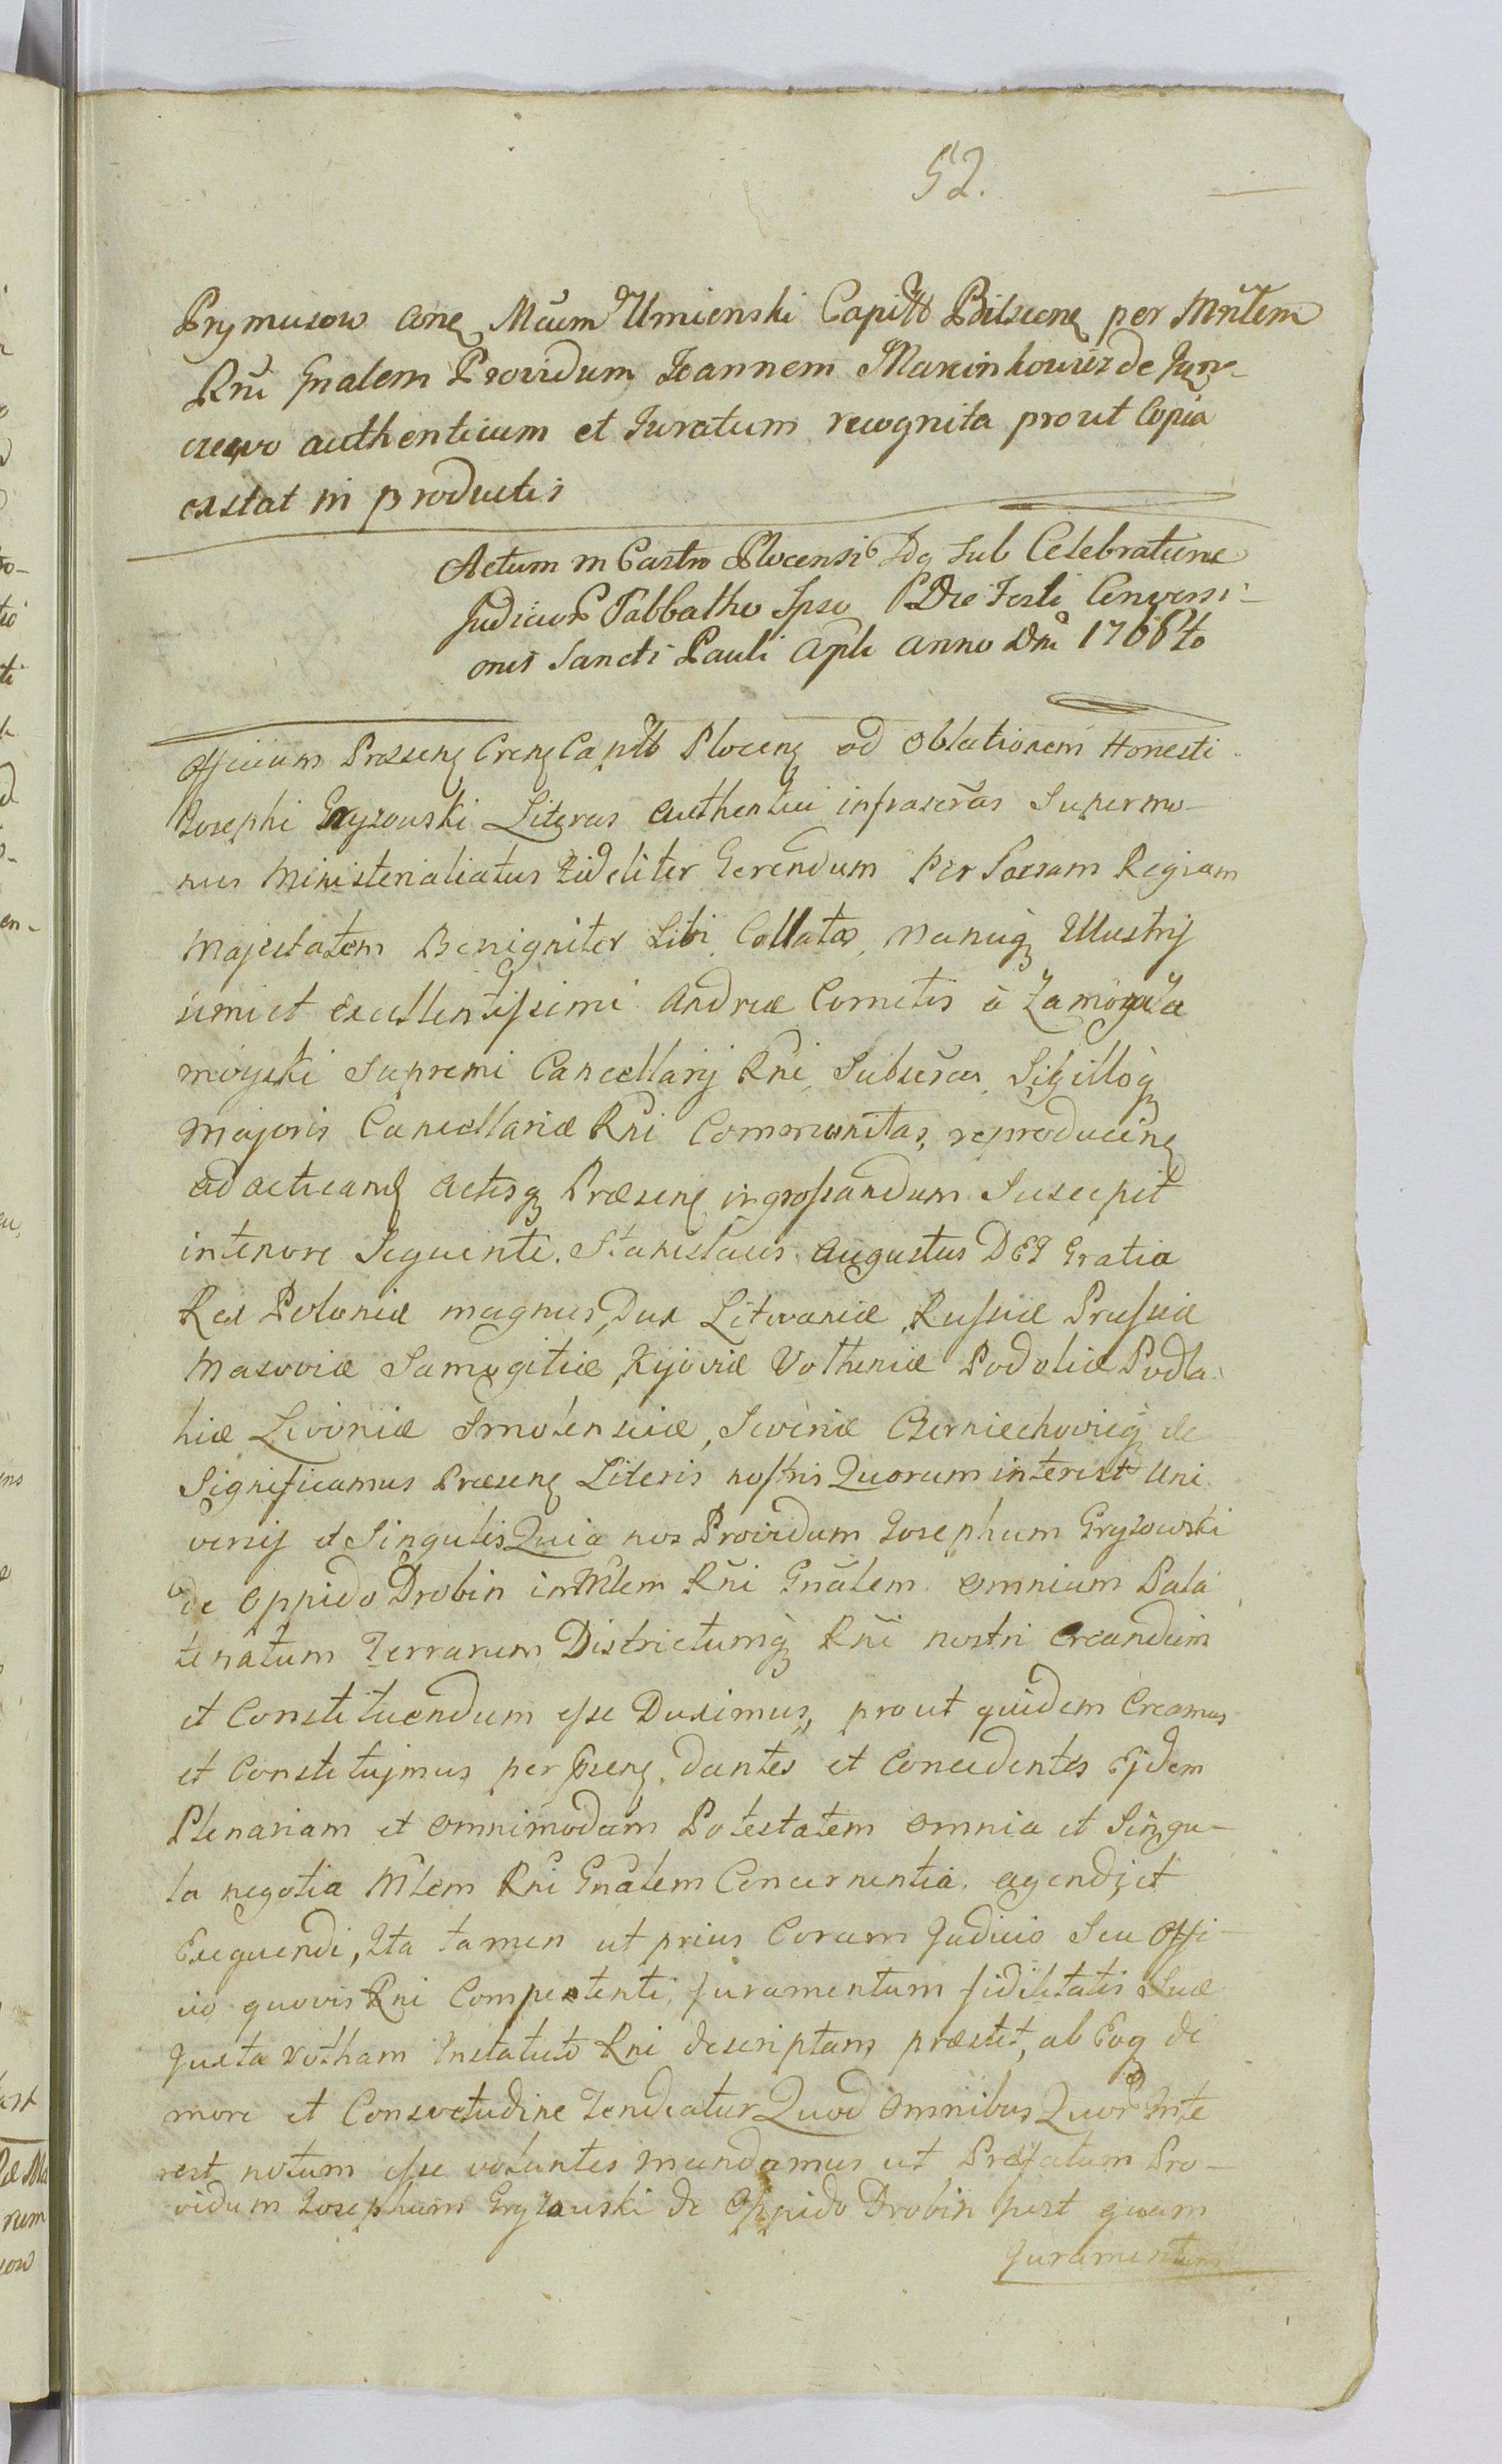 52.
Prymusow cone Mcum Umienski Capitt Bilscene per Mnlem
Rni Gnalem Providum Joannem Marcinkowicz de
authenticum et Juratum recognita prout Copia
exstat in productis
Actum in Castro Plocensi Sub Celebratune
Judicior Sabbatho Ipso Die Festi Conversi-
onis Sancti Pauli Apli anno Dni 1766to
Officium Præsene Crene Capitt Plocene ad Oblationem Honesti
Josephi Gryzowski Literas authentici infrascras Super mu-
nus Ministerialiatus fideliter Gerendum Per Sacram Regiam
Majestatem Benigniter Sibi Collatas, Manuq Illustrij
simi et Excellentissimi Andreæ Comitis à Zamoyscia
moyski Supremi Cancellarij Rni Subscras, Sigilloq
Majoris Cancellariæ Rni Communitas, reproducene
ad acticand actisq Præsene ingrossandum Suscepit
in tenore Sequenti. Stanislaus Augustus DEI Gratia
Rex Poloniæ magnus Dux Litvaniæ Russiæ Prussiæ
Masoviæ Samogitiæ, Kijoviæ Volheniæ Podoliæ Podla-
hiæ Livoniæ Smolensciæ, Severiæ Czerniechoviæq
Significamus Præsene Literis nostris Quorum interest Uni
versij et Singulis Quia nos Providum Josephum Gryzowski
de Oppido Drobin in Mlem Rni Gnalem omnium Pala
tinatum Terrarum Districtumq Rni nostri Creandum
et Constituendum esse Duximus, prout quidem Creamus
et Constitujmus per Psene, dantes et Concedentes Ejdem
Plenariam et omnimodam Potestatem omnia et Singu-
la negotia Mlem Rni Gnalem Concernentia agendi et
Exequendi, Ita tamen ut prius Coram Judicio Seu Offi-
cio quovis Rni Competenti, Juramentum fidelitatis Suæ
Juxta Rotham Instatuto Rni descriptam præstet, ab Eoq de
more et Consvetudine Tendeatur Quod Omnibus Quor Inte
rest notum esse volentes mandamus ut Præfatum Pro-
vidum Josephum Gryzowski de Oppido Drobin post quam
Juramentum